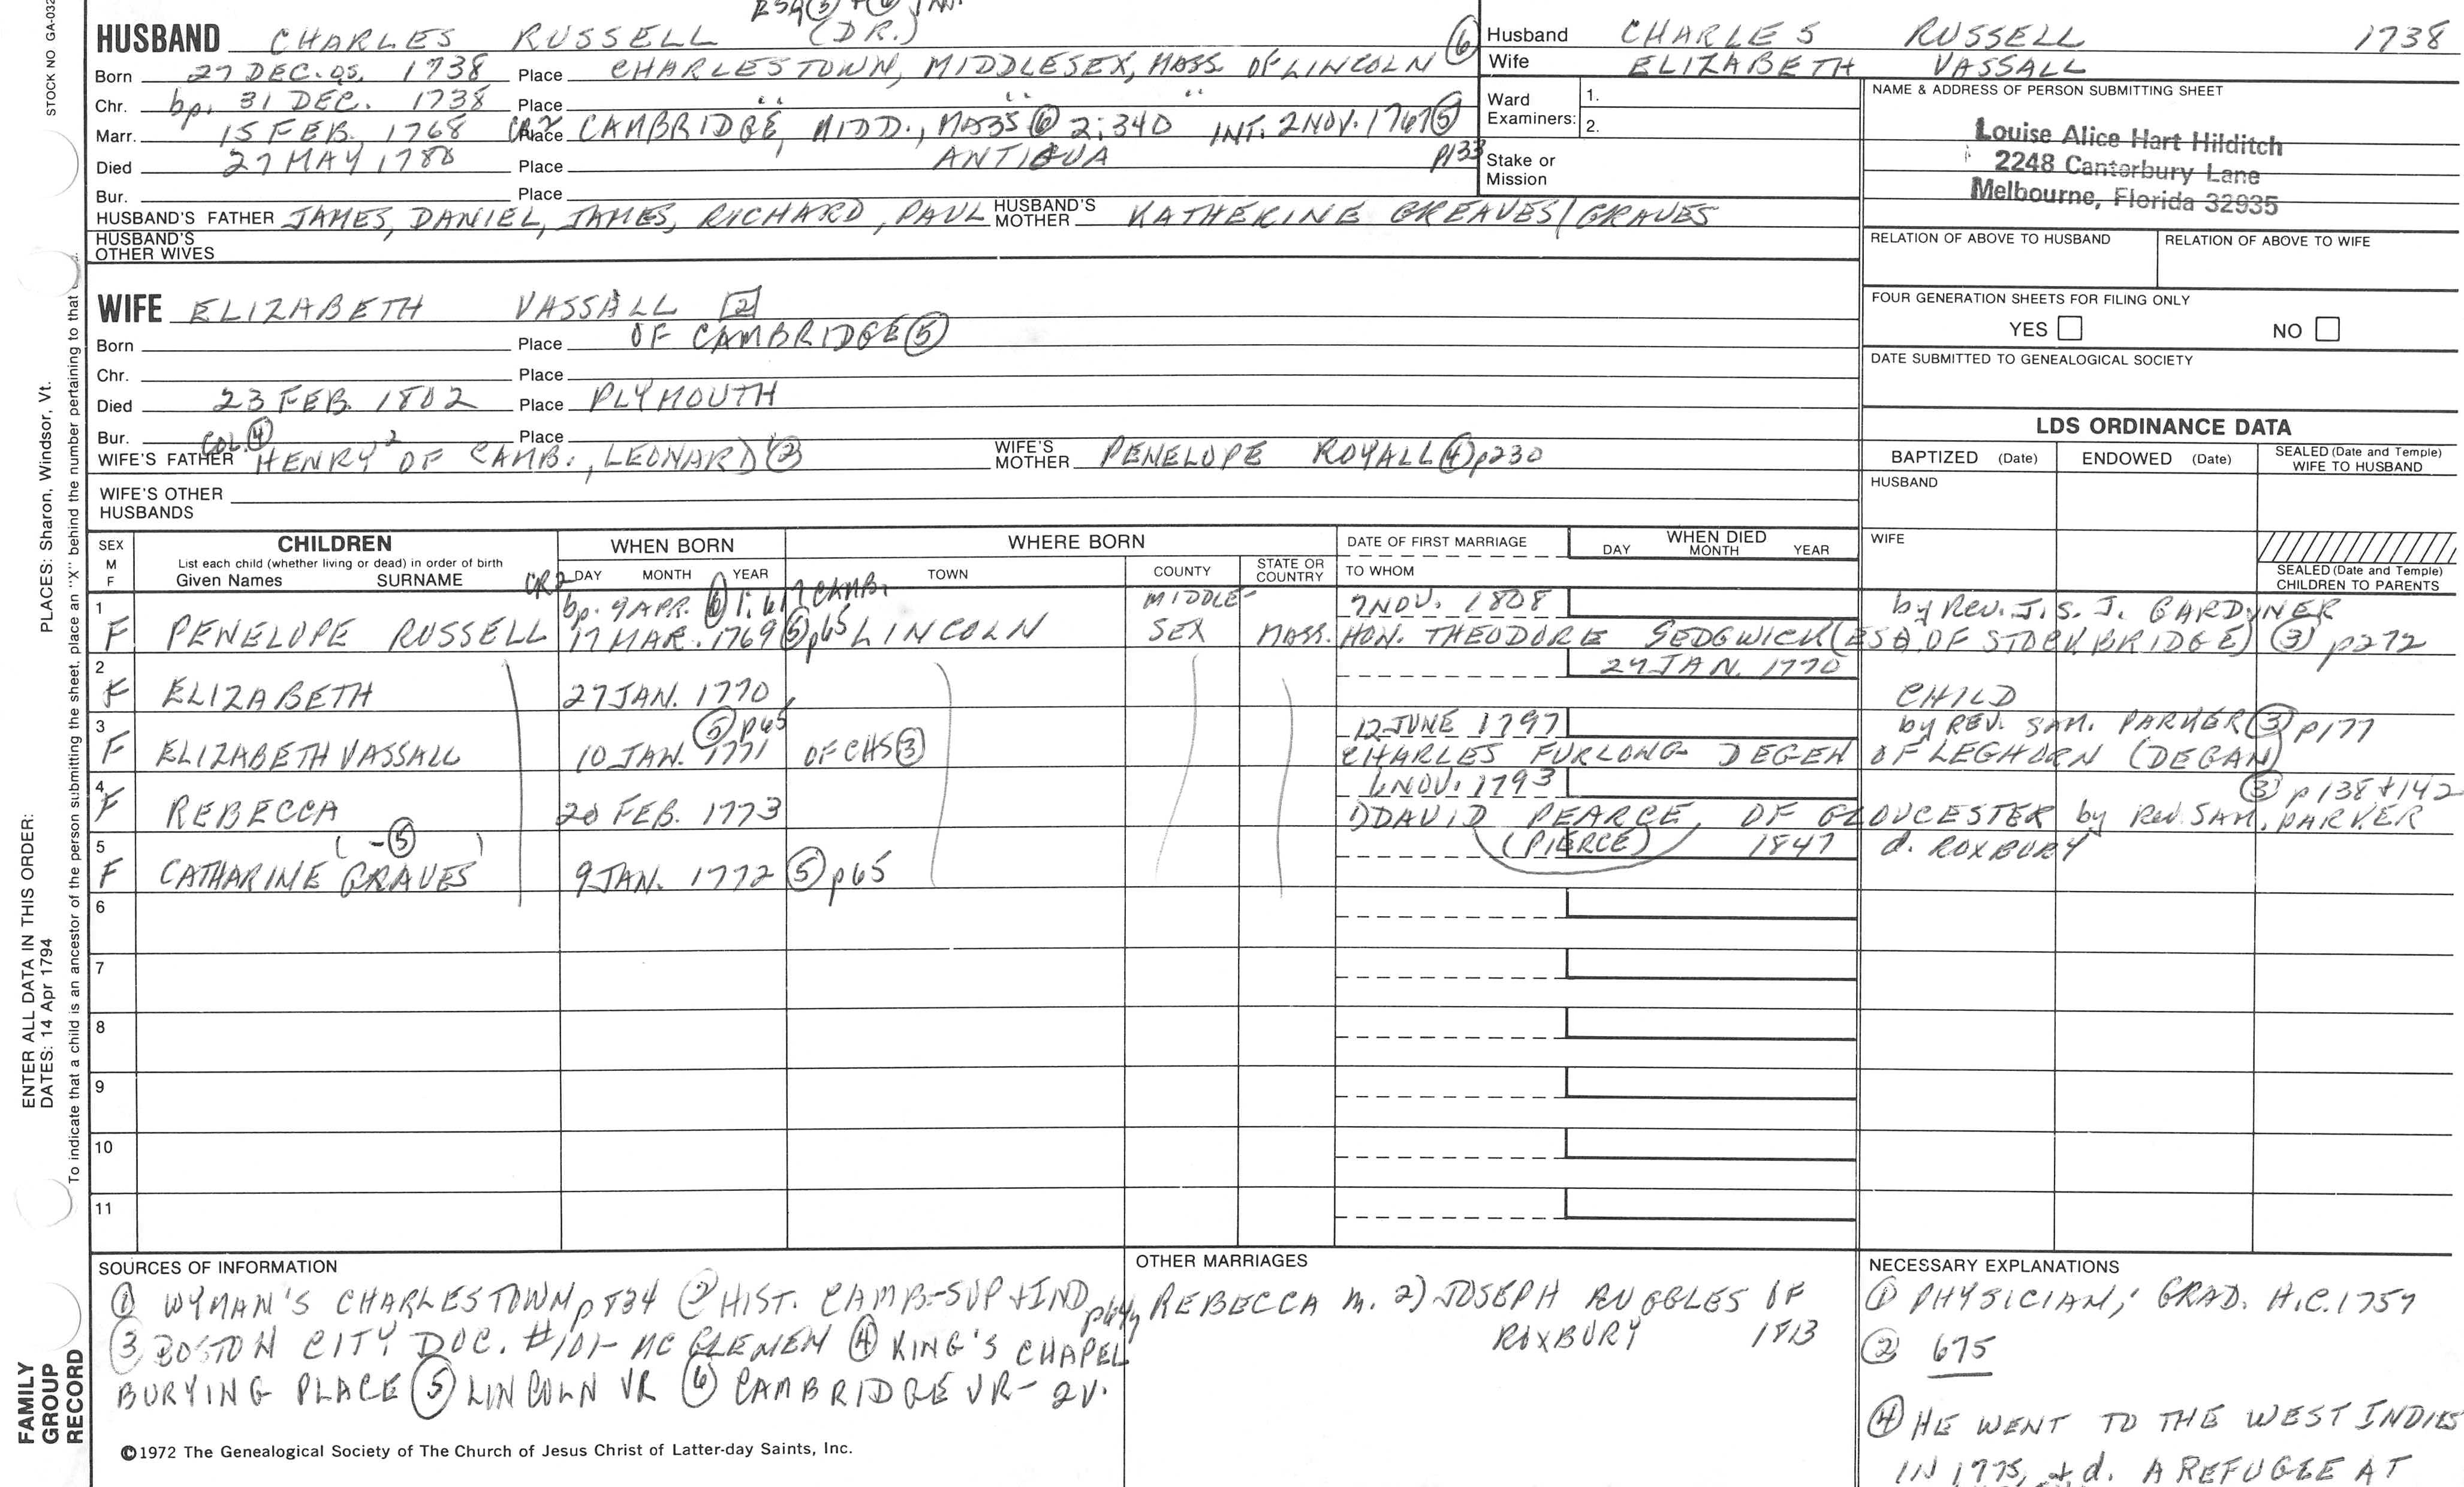 STOCK NO GA-032
HUSBAND CHARLES RUSSELL (DR.)
Born 27 DEC. OS. 1738 Place CHARLESTOWN, MIDDLESEX, MASS. OF LINCOLN ⑥
Chr. bp. 31 DEC. 1738 Place " " "
Marr. 15 FEB. 1768 CR2 Place CAMBRIDGE, MIDD., MASS ⑥ 2:340 INT. 2 NOV. 1767 ⑤ p133
Died 27 MAY 1780 Place ANTIGUA
Bur. Place
HUSBAND'S FATHER JAMES, DANIEL, JAMES, RICHARD, PAUL HUSBAND'S MOTHER KATHERINE GREAVES/GRAVES
HUSBAND'S OTHER WIVES
Husband CHARLES RUSSELL 1738
Wife ELIZABETH VASSALL
Ward Examiners: 1.
2.
Stake or Mission
NAME & ADDRESS OF PERSON SUBMITTING SHEET
Louise Alice Hart Hilditch
2248 Canterbury Lane
Melbourne, Florida 32935
RELATION OF ABOVE TO HUSBAND RELATION OF ABOVE TO WIFE
FOUR GENERATION SHEETS FOR FILING ONLY
YES NO
DATE SUBMITTED TO GENEALOGICAL SOCIETY
WIFE ELIZABETH VASSALL 2
Born Place OF CAMBRIDGE ⑤
Chr. Place
Died 23 FEB. 1802 Place PLYMOUTH
Bur. Place
WIFE'S FATHER COL. ④ HENRY 2 OF CAMB., LEONARD ② WIFE'S MOTHER PENELOPE ROYALL ④ p230
WIFE'S OTHER HUSBANDS
LDS ORDINANCE DATA
BAPTIZED (Date) ENDOWED (Date) SEALED (Date and Temple) WIFE TO HUSBAND
HUSBAND
WIFE
SEALED (Date and Temple) CHILDREN TO PARENTS
SEX M F
CHILDREN
List each child (whether living or dead) in order of birth
Given Names SURNAME
WHEN BORN
DAY MONTH YEAR
WHERE BORN
TOWN COUNTY STATE OR COUNTRY
DATE OF FIRST MARRIAGE
TO WHOM
WHEN DIED
DAY MONTH YEAR
1 CR2 bp. 9 APR. ⑥ 1:617 CAMB. MIDDLE- 7 NOV. 1808 by Rev. J. S. J. GARDYNER
F PENELOPE RUSSELL 17 MAR. 1769 ⑤ p65 LINCOLN SEX MASS. HON. THEODORE SEDGWICK (ESQ OF STOCKBRIDGE) ③ p272
2 24 JAN. 1770
F ELIZABETH 27 JAN. 1770 CHILD
3 ⑤ p65 12 JUNE 1797 by REV. SAM. PARKER ③ p177
F ELIZABETH VASSALL 10 JAN. 1771 OF CHS ③ CHARLES FURLONG DEGEN OF LEGHORN (DEGAN)
4 6 NOV. 1793 ③ p138 + 142
F REBECCA 20 FEB. 1773 DAVID PEARCE, OF GLOUCESTER by Rev. SAM. PARKER
5 ( - ⑤ ) (PIERCE) 1847 d. ROXBURY
F CATHARINE GRAVES 9 JAN. 1772 ⑤ p65
6
7
8
9
10
11
SOURCES OF INFORMATION
① WYMAN'S CHARLESTOWN p834 ② HIST. CAMB-SUP + IND
③ BOSTON CITY DOC. #101- MC GLENEN ④ KING'S CHAPEL
BURYING PLACE ⑤ LINCOLN VR ⑥ CAMBRIDGE VR- 2V.
©1972 The Genealogical Society of The Church of Jesus Christ of Latter-day Saints, Inc.
OTHER MARRIAGES
REBECCA m. 2) JOSEPH RUGGLES OF
ROXBURY 1813
NECESSARY EXPLANATIONS
① PHYSICIAN; GRAD. H.C. 1757
② 675
④ HE WENT TO THE WEST INDIES
IN 1775, + d. A REFUGEE AT
FAMILY GROUP RECORD
ENTER ALL DATA IN THIS ORDER:
DATES: 14 Apr 1794
PLACES: Sharon, Windsor, Vt.
To indicate that a child is an ancestor of the person submitting the sheet, place an "X" behind the number pertaining to that